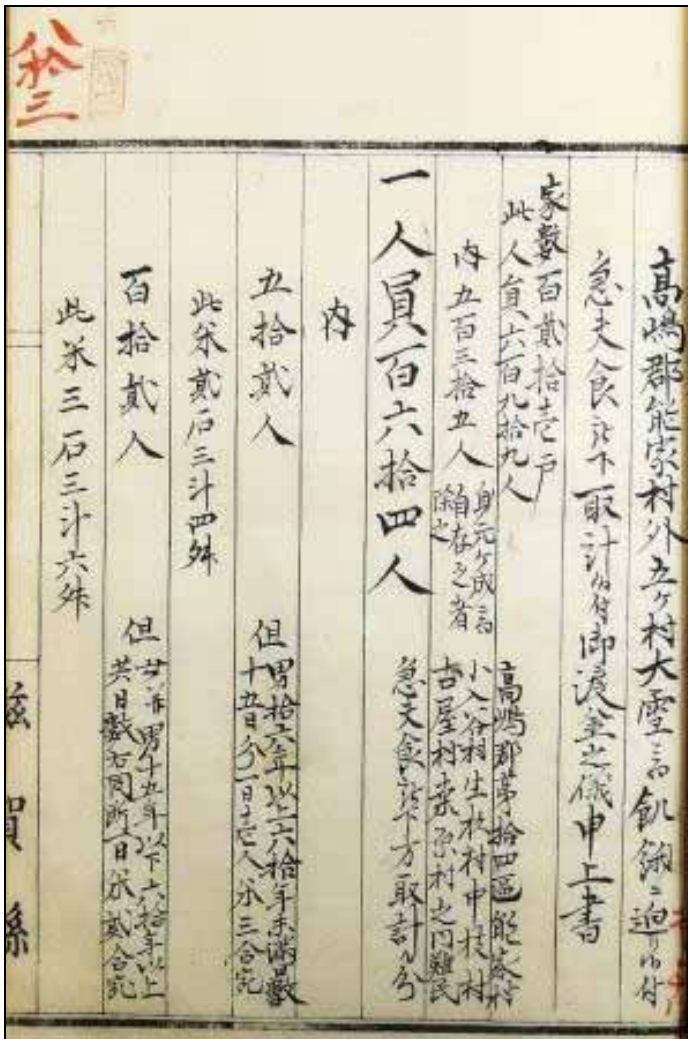 高嶋郡能家村外五ヶ村大雪ニ而飢餓ニ迫リ候付
急夫食被下取計候付御渡金之儀申上書
家数百貳拾壱戸
此人員六百九拾九人
内五百三拾五人
身元ケ成ニ而
自存之者
除之
高嶋郡第拾四區能家村
小入谷村生杉村中牧村
古屋村桑原村之内難民
急夫食被下方取計候分
一人員百六拾四人
内
五拾貳人
但男拾六年以上六拾年未満数
十五日分一日壱人米三合宛
此米貳石三斗四舛
百拾貳人
但女并男十五年以下六拾年以上
共日数右同断一日米貳合宛
此米三石三斗六舛
滋賀縣
八拾三